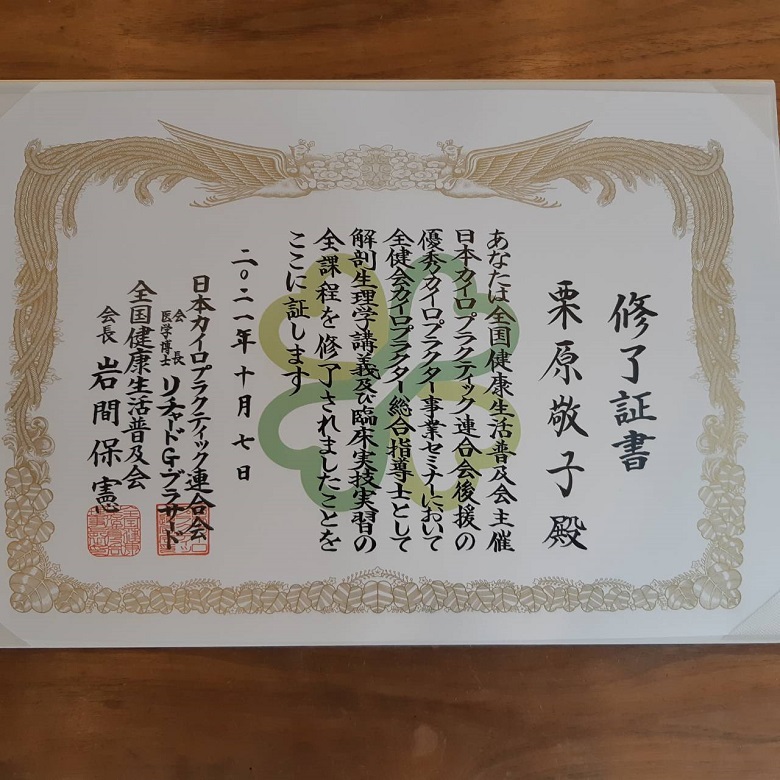 修了証書
栗原敬子殿
あなたは全国健康生活普及会主催
日本カイロプラクティック連合会後援の
優秀カイロプラクター事業セミナーにおいて
全健会カイロプラクター総合指導士として
解剖生理学講義及び臨床実技実習の
全課程を修了されましたことを
ここに証します
二〇二一年十月七日
日本カイロプラクティック連合会
会長
医学博士 リチャードG・ブラサード
全国健康生活普及会
会長 岩間保憲